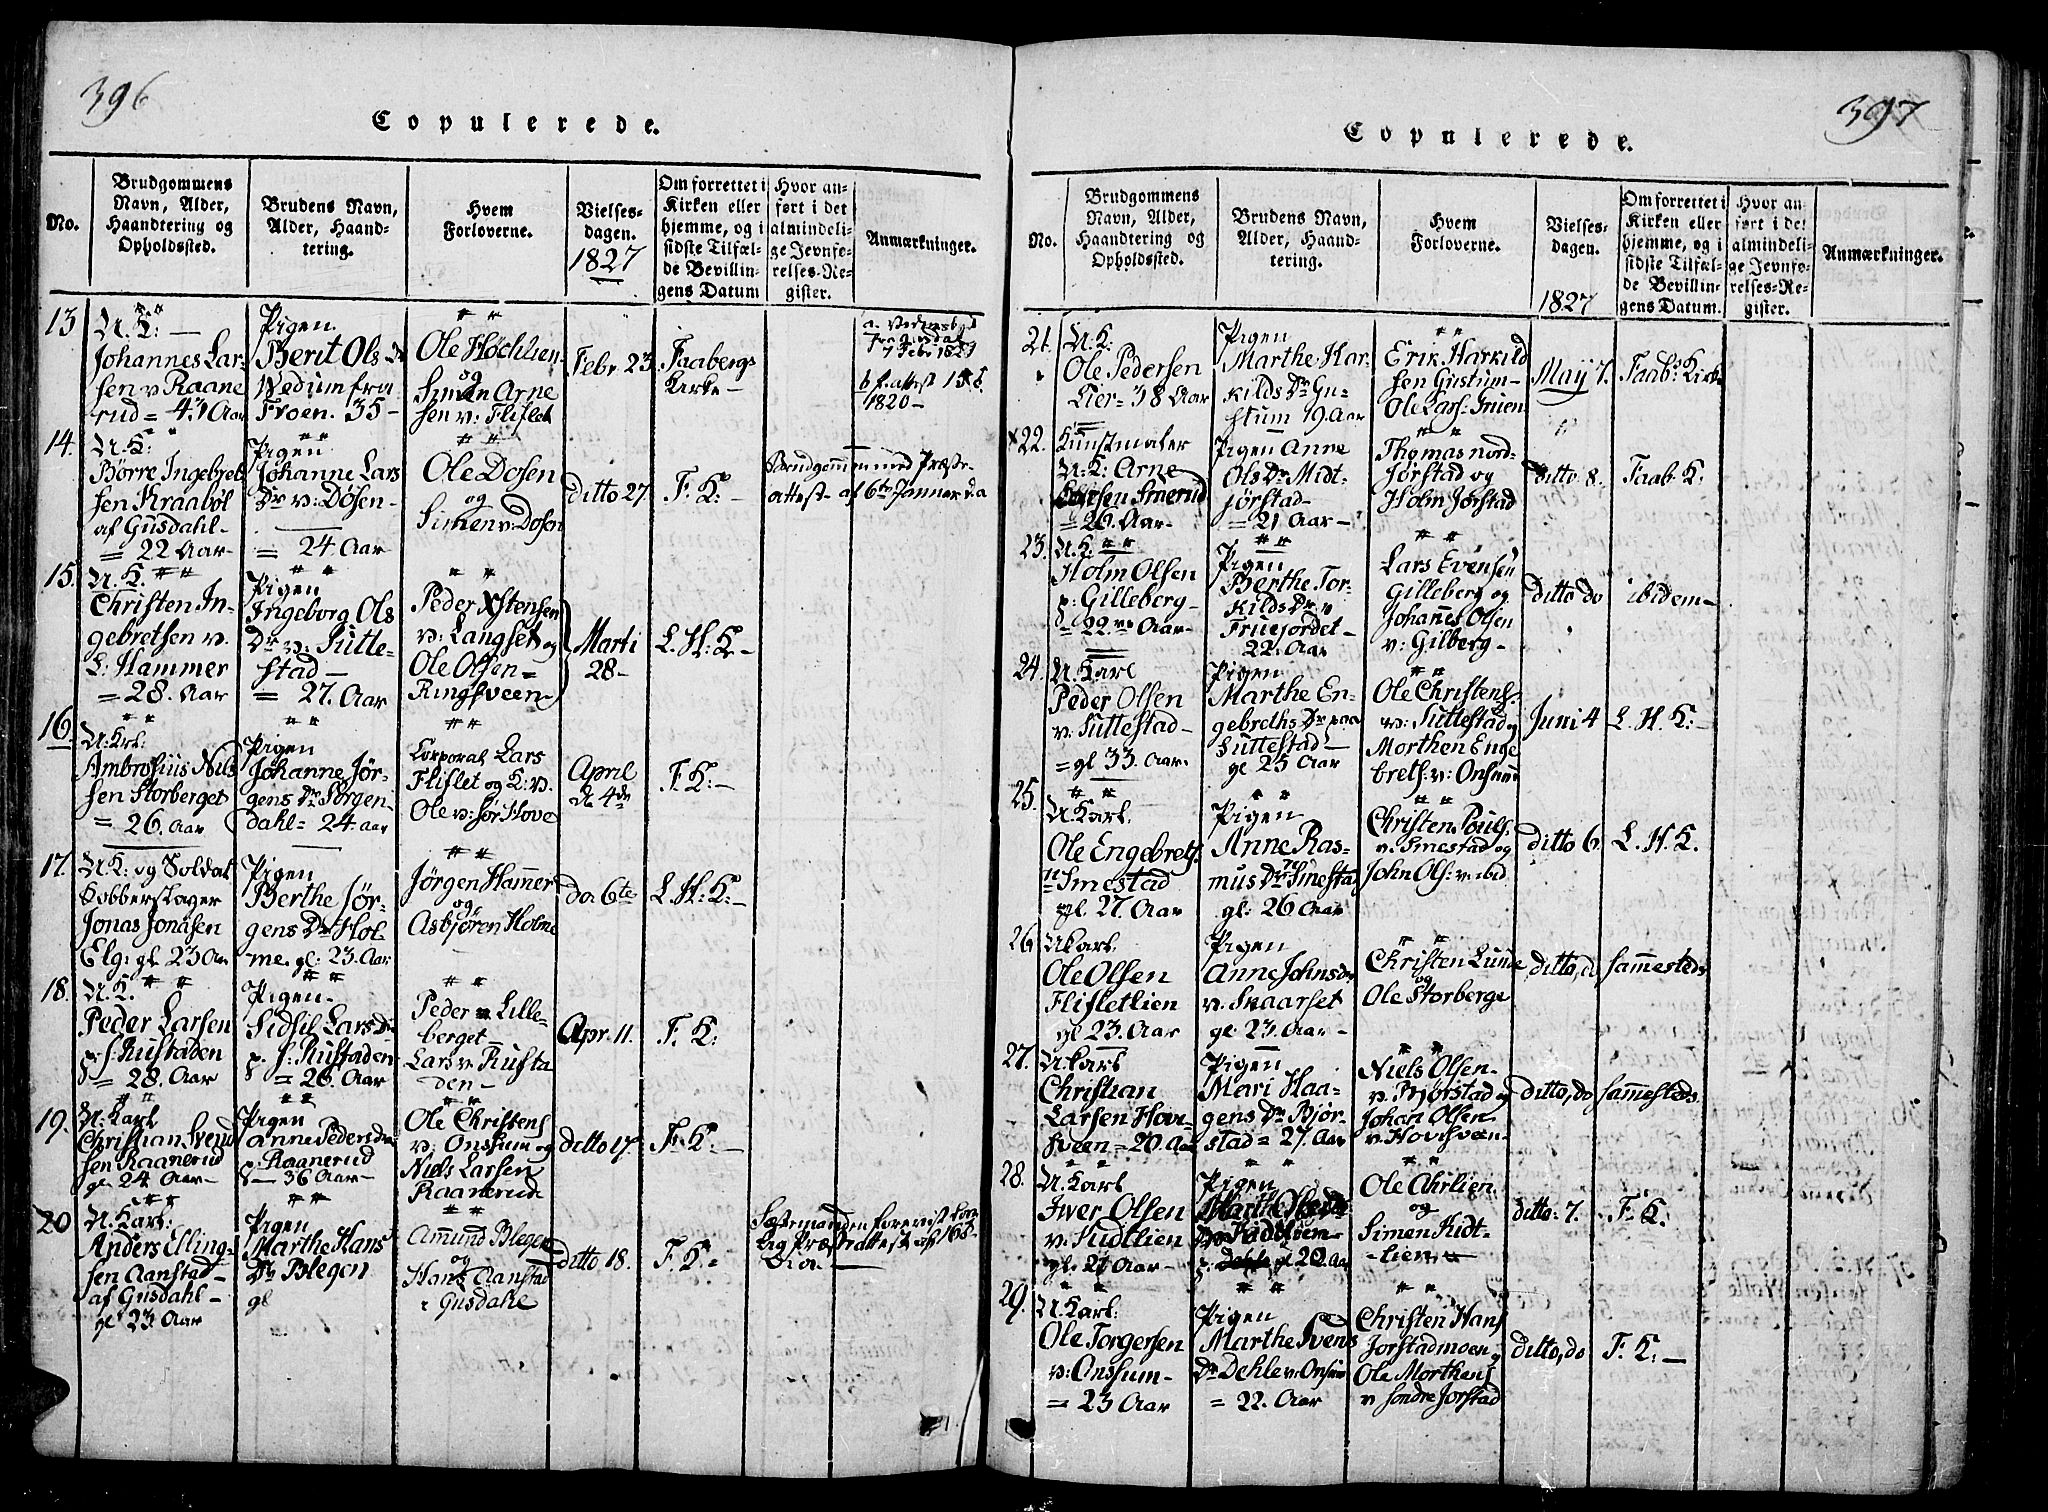 396
Copulerede.
No.
Brudgommens
Navn, Alder,
Haandtering og
Opholdssted.
Brudens Navn,
Alder, Haand-
tering.
Hvem
Forloverne.
Vielses-
dagen.
1827
Om forrettet i
Kirken eller
hjemme, og i
sidste Tilfæl-
de Bevillin-
gens Datum
Hvor an-
ført i det
almindeli-
ge Jevnfø-
relses-Re-
gister.
Anmærkninger.
13
U. K: —
Johannes Lar-
sen v. Raane
rud = 41 Aar
Pigen
Berit Ols Dr
Wedum fra
Froen. 35 —
Ole Höchlien
og
Simen Arne
sen v: Flislet
Febr. 23
Faabergs
Kirke —
7 Febr 1827
1820 —
14.
U. K:
Børre Ingebret
sen Kraabøl
af Gusdahl —
= 22 Aar —
Pigen
Johanne Lars
Dr v: Dösen —
= 24. Aar
Ole Dosen
og
Simen v: Dosen
ditto 27.
F. K: —
Brudgommen med Præste-
attest af 6te Janner d.a
15.
U. K.
Christen In-
gebretsen v.
L: Hammer
= 28. Aar
Pigen
Ingeborg Ols
Dr v: Sutte-
stad —
= 27. Aar
Peder Xstensen
v: Langset og
Ole Olsen =
Ringsveen
Marti
28 —
L. H: K —
16.
U: Krl:
Ambrosius Nils
sen Storberget
= 26. Aar
Pigen
Johanne Jör-
gens Dr Sörgen
dahl = 24. aar
Corporal Lars
Flislet og K: v.
Ole v: Sör Hove
April
d. 4de
F. K: —
17.
U. K: og Soldat
Kobberslager
Jonas Jonasen
Elg: gl 23 Aar
Pigen
Berthe Jör-
gens Dr Hol
me. gl: 23. Aar
Jörgen Hamer
og
Asbjören Holme
do. 6te
L. H: K: —
18.
U. K.
Peder Larsen
p. S: Rustaden
= 28. Aar
Pigen.
Sidsil Lars Dr
p. S: Rustaden
= 26. Aar
Peder v Lille-
berget
Lars v. Rusta
den —
Apr. 11.
F. K:
19.
U. Karl
Christian Svend
sen Raanerud
gl 24 Aar —
Pigen
Anne Peders dr
p: Raanerud
— 36 Aar —
Ole Christens
v: Onssum og
Niels Larsen
Raanerud
ditto 17.
F. K: —
20
U. Karl:
Anders Elling-
sen Aanstad —
af Gusdahl —
gl 23. Aar
Pigen
Marthe Hans
Dr Blegen
gl
Amund Blegen
og
Hans Aanstad
i Gusdahl
ditto 18.
F. K:
397
Copulerede.
No.
Brudgommens
Navn, Alder,
Haandtering og
Opholdssted.
Brudens Navn,
Alder, Haand-
tering.
Hvem
Forloverne.
Vielses-
dagen.
1827
Om forrettet i
Kirken eller
hjemme, og i
sidste Tilfæl-
de Bevillin-
gens Datum.
Hvor an-
ført i det
almindeli-
ge Jevnfø-
relses-Re-
gister.
Anmærkninger.
21.
U. K:
Ole Pedersen
Lier = 38 Aar
Pigen
Marthe Har-
kilds Dr Gu-
stum 19. Aar
Erik Harkild
sen Gustum —
Ole Lars: Fruen
May 7.
Faab: Kirke
22.
Kunstmaler
U. K: Arne
Larsen Smerud
= 26. Aar —
Pigen Anne
Ols Dr Midt
jörstad —
= 21 Aar —
Thomas Nord-
Jörstad og
Holm Jörstad
ditto 8.
Faab K.
23.
U. K:
Holm Olsen
p: Gilleberg —
= 22. Aar —
Pigen
Berthe Tor-
kilds Dr v
Fruejordet —
22. Aar
Lars Evensen
Gilleberg og
Johannes Olsen
v: Gilberg —
ditto do
ibidem —
24.
U. Karl
Peder Olsen
v: Suttestad —
= gl 33. Aar.
Pigen
Marthe En-
gebreths Dr paa
Suttestad —
gl 25 Aar
Ole Christens:
v: Suttestad og
Morthen Enge
brets: v: Onsum
Juni 4
L. H. K: —
25.
U. Karl.
Ole Engebrets
Smestad
gl. 27. Aar
Pigen
Anne Ras-
mus Dr Smestad
gl: 26 Aar
Christen Pouls
v. Smestad og
John Ols: v: ibid
ditto 6.
L. H. K.
26
U Karl.
Ole Olsen
Flisletlien
gl 23. Aar
Pigen
Anne Johns dr
v. Skaarset
gl: 23. Aar —
Christen Lunde
og
Ole Storberge
ditto, do
Sammesteds
27.
U Karl
Christian
Larsen Hov-
sveen = 20 Aar
Pigen
Mari Haa-
gens Dr Björ-
stad = 27. Aar
Niels Olsen
v. Bjørstad og
Johan Olsen
v. Hovesveen —
ditto, do
Sammesteds
28.
U. Karl
Iver Olsen
v: Sudtlien
gl. 21 Aar —
Pigen
gl 20. Aar
Ole Ahrlien
og
Simen Kidt-
lien
ditto: 7.
F: K:
29.
U. Karl.
Ole Torgersen
v: Onssum —
= 23 Aar
Pigen
Marthe Svens
Dr Dehle v: Onsum
= 22. Aar
Christen Hans
Jorstadmoen og
Ole Morthens
v Söndre Jorstad
ditto, do
F. K: —